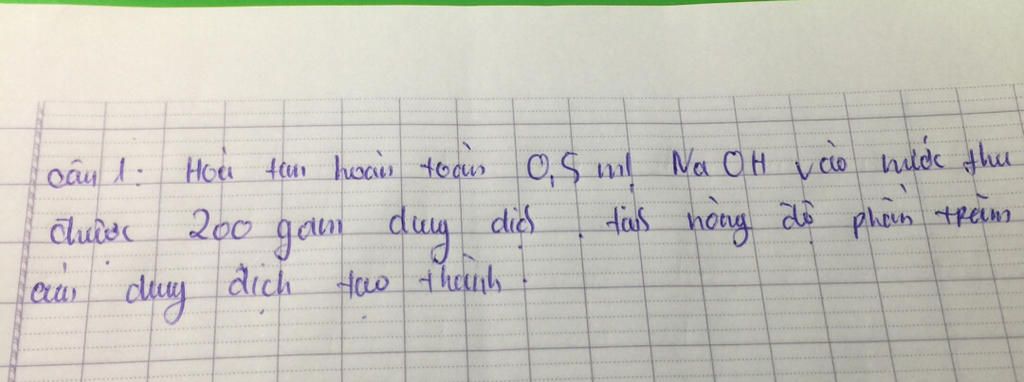 câu 1: Hoà tan hoàn toàn 0,5 ml NaOH vào nước thu
được 200 gam duy dịch. tính nồng độ phần trăm
của duy dịch tạo thành.